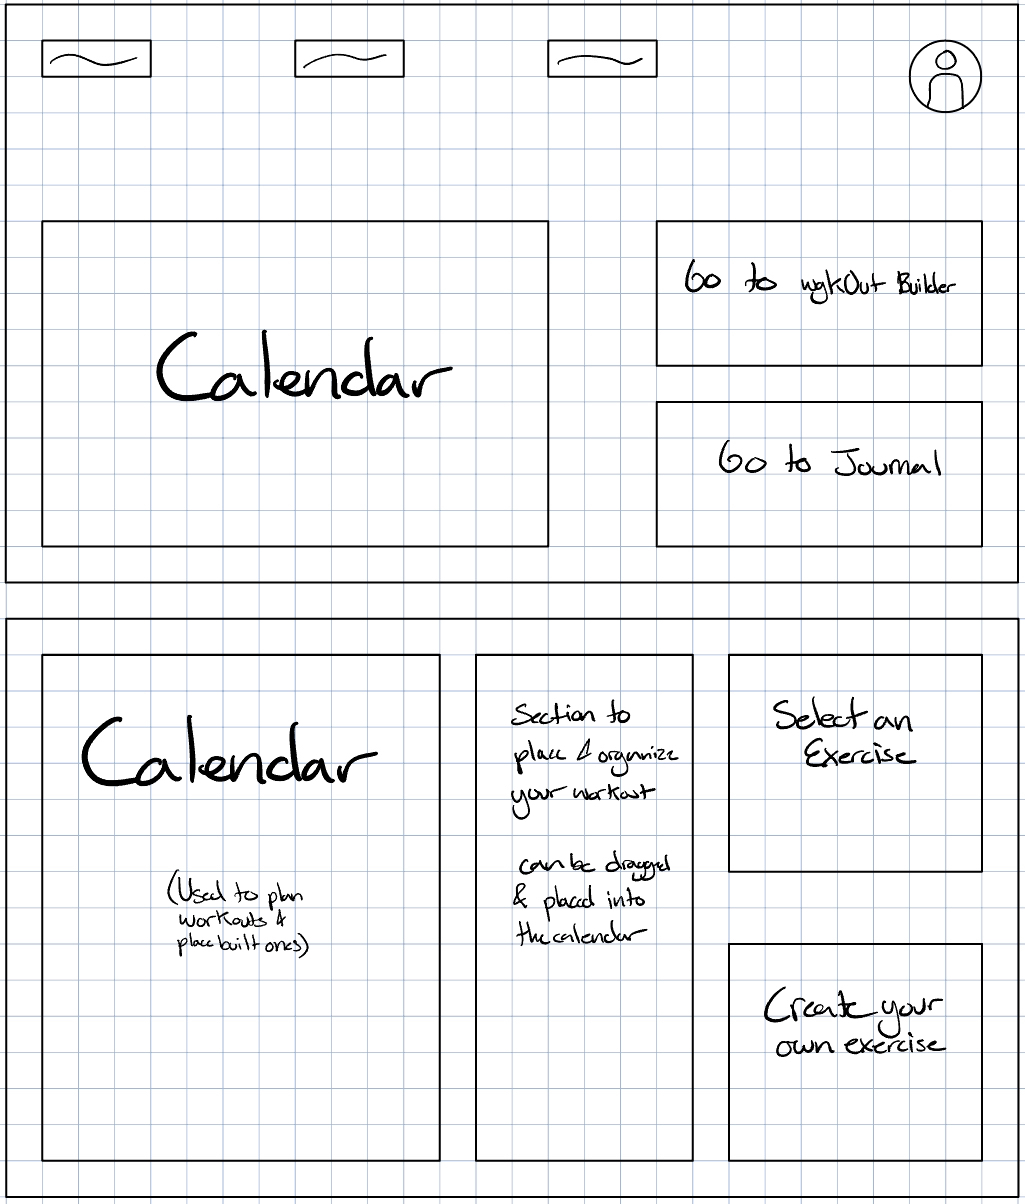 Calendar
Go to workout Builder
Go to Journal
Calendar
(Used to plan
workouts &
place built ones)
Section to
place & organize
your workout
can be dragged
& placed into
the calendar
Select an
Exercise
Create your
own exercise